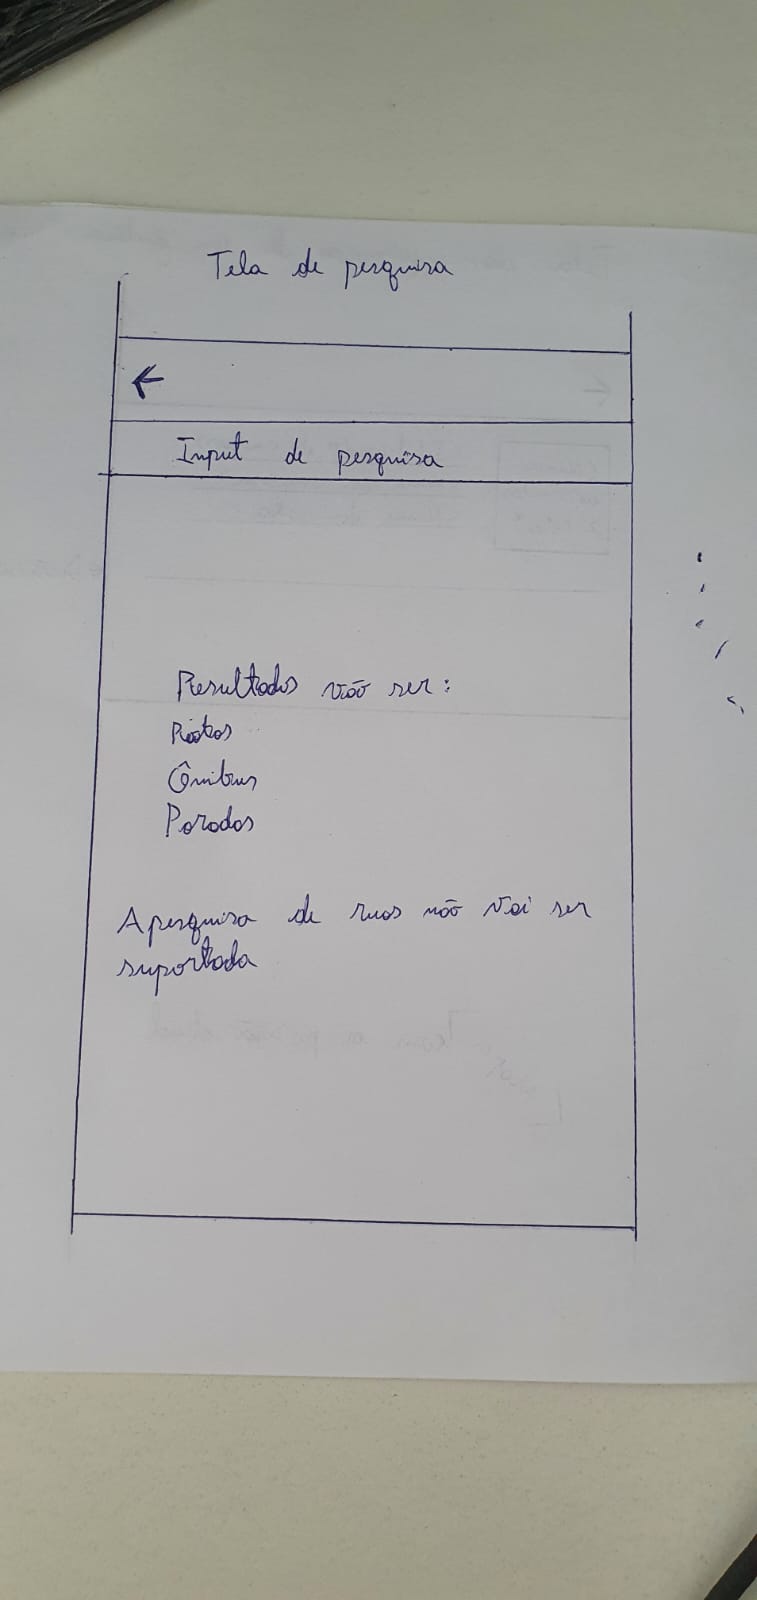 Tela de pesquisa
←
Input de pesquisa
Resultados vão ser:
Rotas
Ônibus
Paradas
A pesquisa de ruas não vai ser
suportada